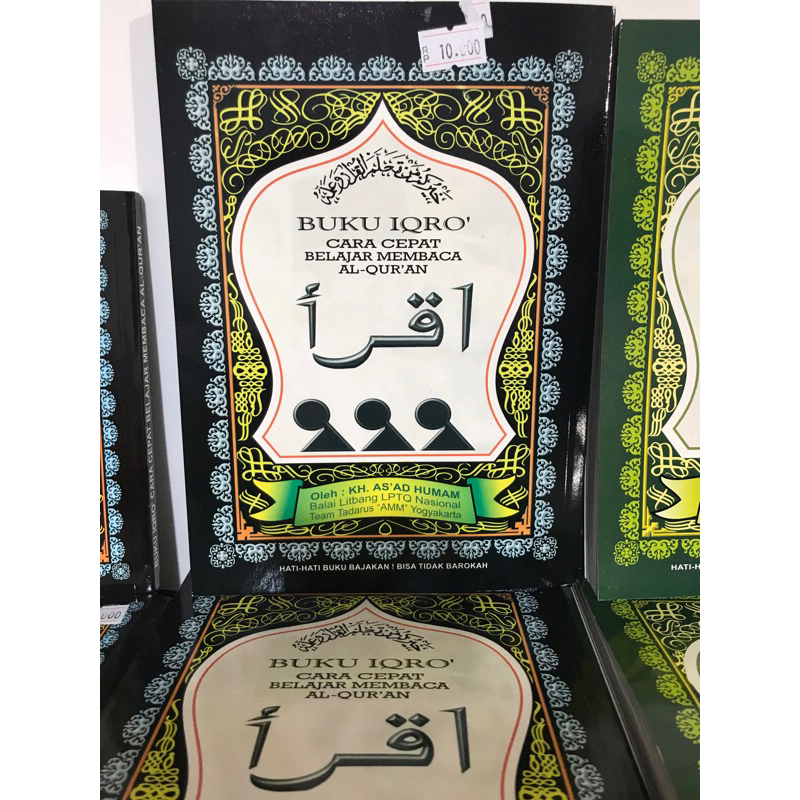 RP 10.000
خيركم من تعلم القرآن وعلمه
BUKU IQRO'
CARA CEPAT
BELAJAR MEMBACA
AL-QUR'AN
اقرأ
Oleh : KH. AS'AD HUMAM
Balai Litbang LPTQ Nasional
Team Tadarus "AMM" Yogyakarta
HATI-HATI BUKU BAJAKAN ! BISA TIDAK BAROKAH
BUKU IQRO' CARA CEPAT BELAJAR MEMBACA AL-QUR'AN
HATI-H
.000
خيركم من تعلم القرآن وعلمه
BUKU IQRO'
CARA CEPAT
BELAJAR MEMBACA
AL-QUR'AN
اقرأ